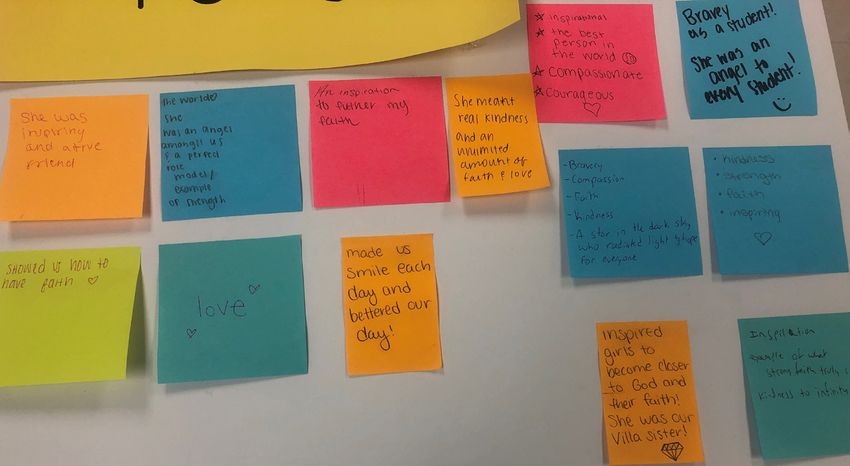 She was
inspiring
and a true
friend
the world
She
was an angel
amongst us
& a perfect
role
model/
example
of strength
An inspiration
to further my
faith
She meant
real kindness
and an
unlimited
amount of
faith & love
inspirational
the best
person in
the world
compassionate
courageous
Bravey
as a student!
She was an
angel to
every student!
-Bravery
-Compassion
-Faith
-Kindness
-A star in the dark sky
who radiated light & hope
for everyone
• kindness
• strength
• faith
• inspiring
showed us how to
have faith
love
made us
smile each
day and
bettered our
day!
inspired
girls to
become closer
to God and
their faith!
She was our
Villa sister!
Inspiration
example of what
strong faith truly is
kindness to infinity